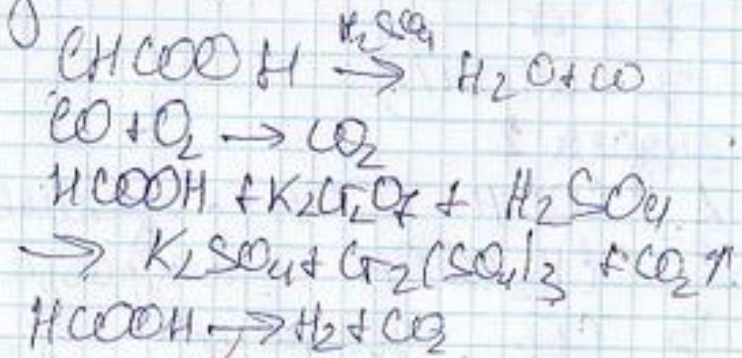 1) CHCOOH H₂SO₄→ H₂O + CO
CO + O₂ → CO₂
HCOOH + K₂Cr₂O₇ + H₂SO₄
→ K₂SO₄ + Cr₂(SO₄)₃ + CO₂↑
HCOOH → H₂ + CO₂